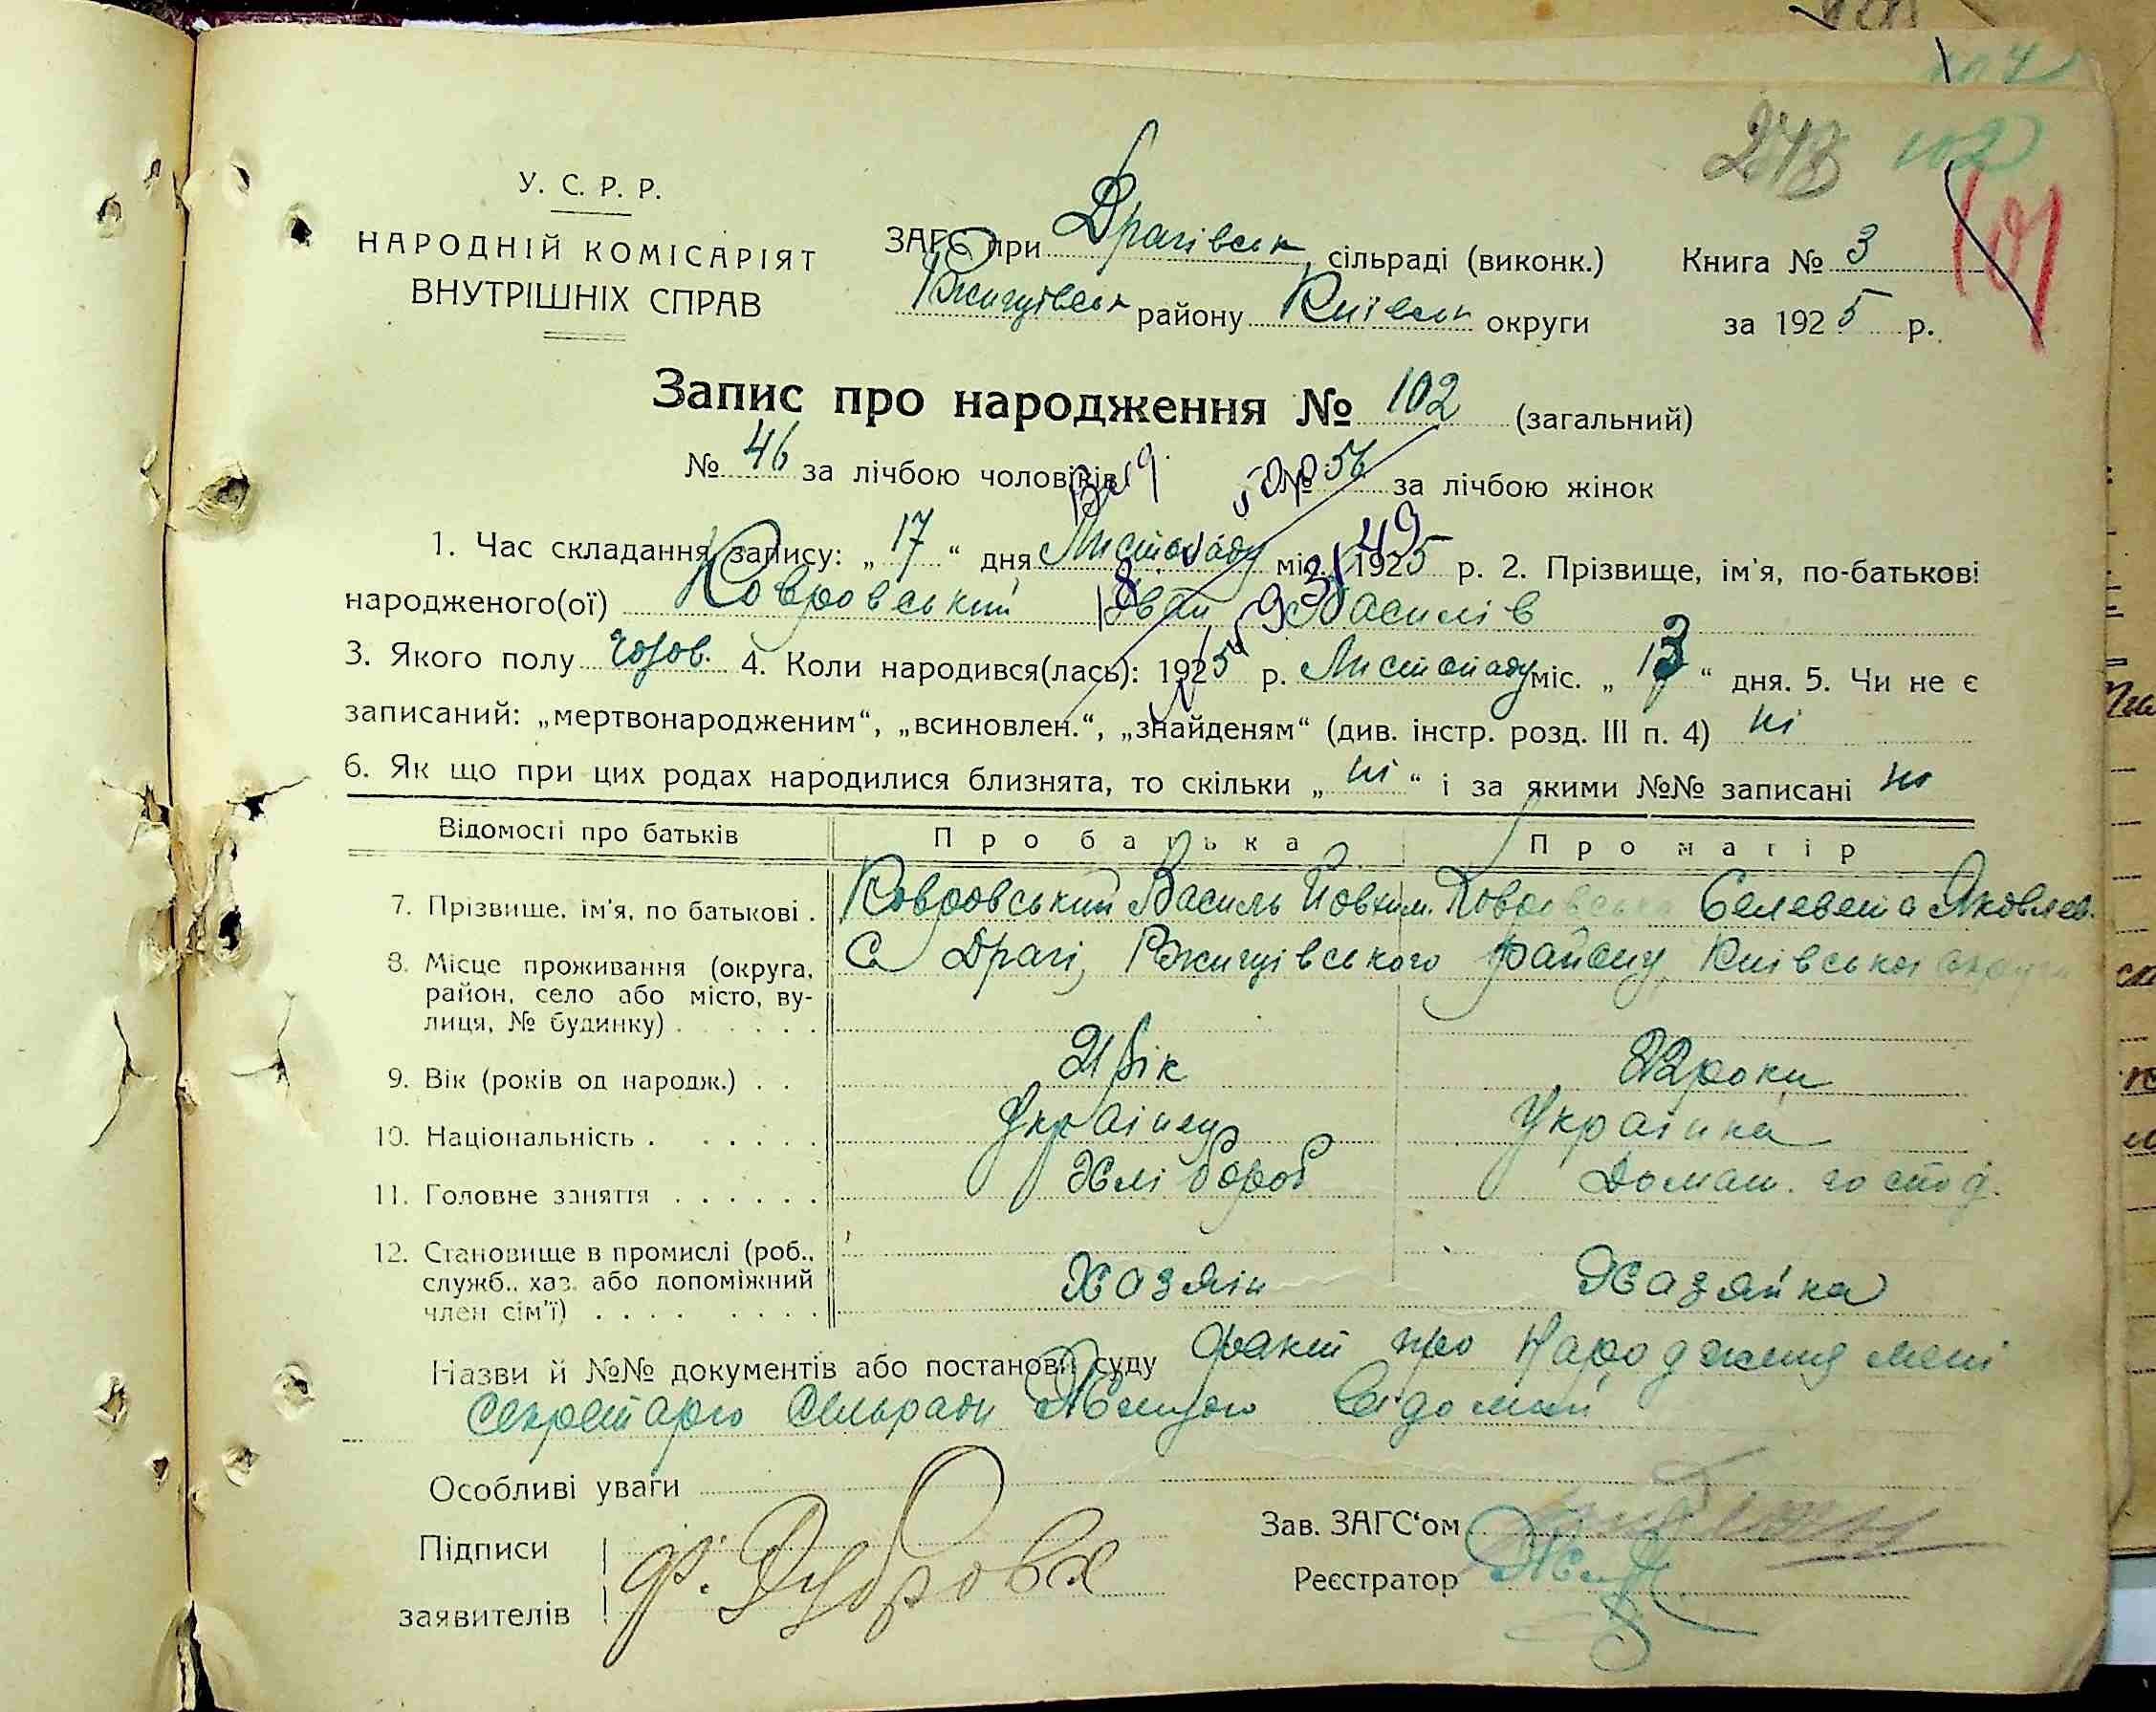 248 102
101
У. С. Р. Р.
НАРОДНІЙ КОМІСАРІЯТ
ВНУТРІШНІХ СПРАВ
ЗАГС при Драгівськ сільраді (виконк.)
Ржищівськ району Київськ округи
Книга № 3
за 1925 р.
Запис про народження № 102 (загальний)
№ 46 за лічбою чоловіків № 56 за лічбою жінок
1. Час складання запису: „17“ дня Листопаду міс. 1925 р. 2. Прізвище, ім'я, по-батькові
народженого(ої) Ковровський Іван Василів
3. Якого полу Чолов. 4. Коли народився(лась): 1925 р. Листопаду міс. „13“ дня. 5. Чи не є
записаний: „мертвонародженим“, „всиновлен.“, „знайденям“ (див. інстр. розд. III п. 4) ні
6. Як що при цих родах народилися близнята, то скільки „ні“ і за якими №№ записані ні
Відомості про батьків Про батька Про матір
7. Прізвище, ім'я, по батькові . Ковровський Василь Йовхим. Ковровська Селевета Яковлев.
8. Місце проживання (округа, С Драгі, Ржищівського району Київської округи
район, село або місто, ву-
лиця, № будинку) . . . . . .
9. Вік (років од народж.) . . 21 рік 22 роки
10. Національність . . . . . . Українец Українка
11. Головне заняття . . . . . . Хлібороб Домаш. господ.
12. Становище в промислі (роб.,
служб., хаз. або допоміжний Хазяїн Хазяйка
член сім'ї) . . . . . . . . .
Назви й №№ документів або постанови суду Факт про Народження мені
Секретарю Сільради відомий
Особливі уваги
Підписи
заявителів
Ф. Дубровх
Зав. ЗАГС'ом
Реєстратор